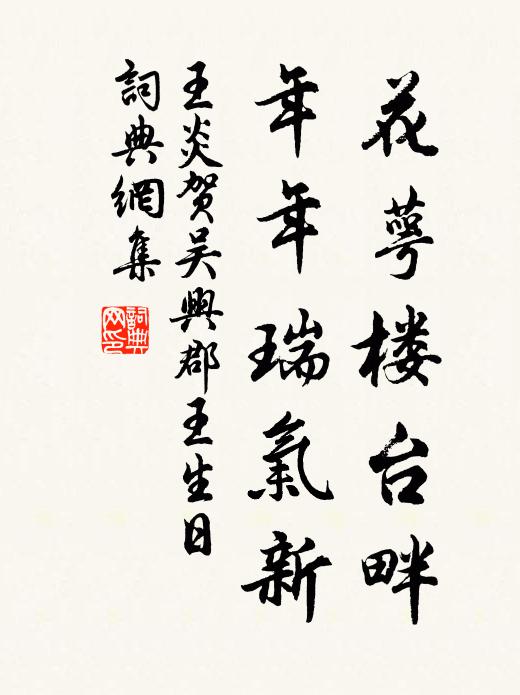 花萼楼台畔
年年瑞氣新
王炎贺吴興郡王生日
詞典網集
詞典网印